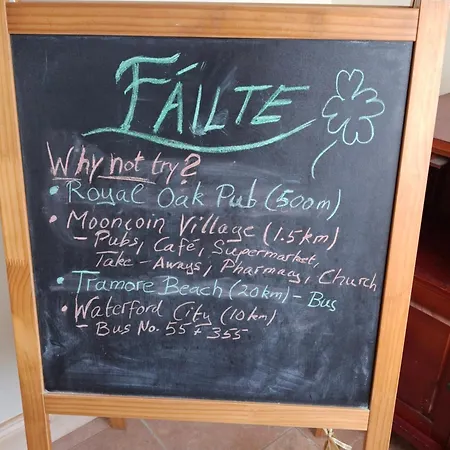 FÁILTE
Why not try?
• Royal Oak Pub (500m)
• Mooncoin Village (1.5km)
- Pubs, Café, Supermarket,
Take-Aways, Pharmacy, Church
• Tramore Beach (20km) - Bus
• Waterford City (10km)
- Bus No. 55 + 355